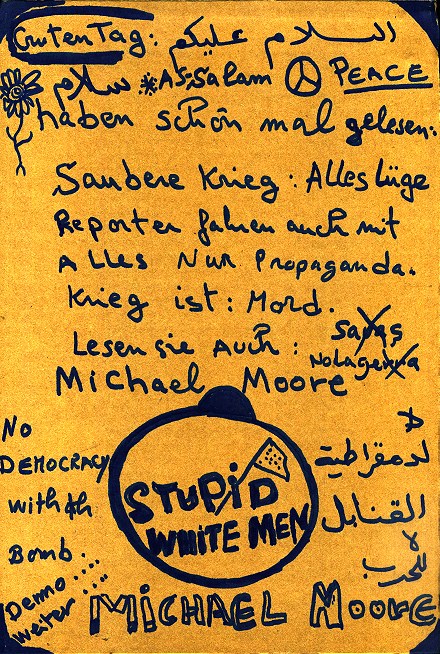 Guten Tag: السلام عليكم
سلام *AS-Salam PEACE
haben schön mal gelesen:
Saubere Krieg: Alles Lüge
Reporter fahren auch mit
Alles Nur Propaganda.
Krieg ist: Mord.
Lesen sie Auch: Savaş
Michael Moore
STUPiD
WHiTE MEN
No
DEMOCRACY
with
Bomb....
Demo....
weiter...
لا
لدمقراطية
القنابل
لا
للحرب
MiCHAEL MooRE